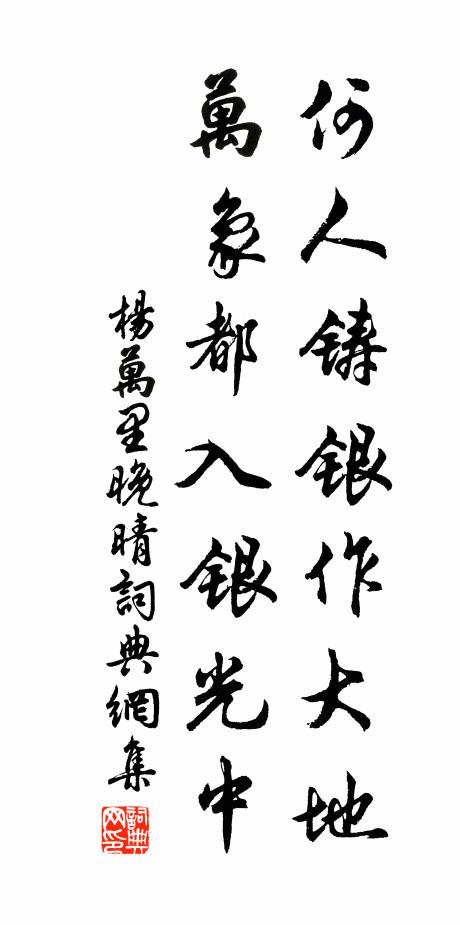 何人铸银作大地
萬象都入银光中
楊萬里晚晴詞典網集
詞典网印